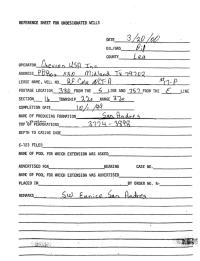 REFERENCE SHEET FOR UNDESIGNATED WELLS
DATE 3/20/00
OIL/GAS Oil
COUNTY Lea
OPERATOR Chevron USA Inc
ADDRESS Midland Tx 79702
LEASE NAME, WELL NO.
FOOTAGE LOCATION 330 FROM THE S LINE AND 757 FROM THE E LINE
SECTION 16 TOWNSHIP 22s RANGE 37e
COMPLETION DATE
NAME OF PRODUCING FORMATION San Andres
TOP OF PERFORATIONS 3774 - 3898
DEPTH TO CASING SHOE
C-123 FILED
NAME OF POOL FOR WHICH EXTENSION WAS ASKED
ADVERTISED FOR HEARING CASE NO.
NAME OF POOL FOR WHICH EXTENSION WAS ADVERTISED
PLACED IN BY ORDER NO. R-
REMARKS SW Eunice San Andres